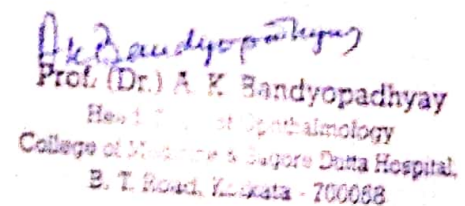 AK Bandyopadhyay
Prof. (Dr.) A K Bandyopadhyay
Head Dept. of Ophthalmology
College of Medicine & Sagore Dutta Hospital,
B. T. Road, Kolkata - 700058